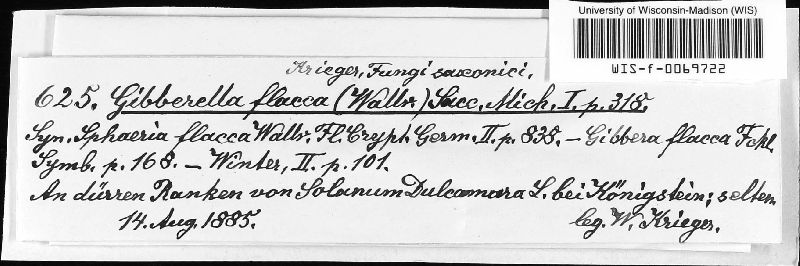 University of Wisconsin-Madison (WIS)
WIS-f-0069722
Krieger, Fungi saxonici.
625. Gibberella flacca (Wallr.) Sacc. Mich. I. p. 318.
Syn. Sphaeria flacca Wallr. Fl. Crypt. Germ. II. p. 838. – Gibbera flacca Fckl.
Symb. p. 168. – Winter, II. p. 101.
An dürren Ranken von Solanum Dulcamara L. bei Königstein; selten.
14. Aug. 1885. leg. W. Krieger.